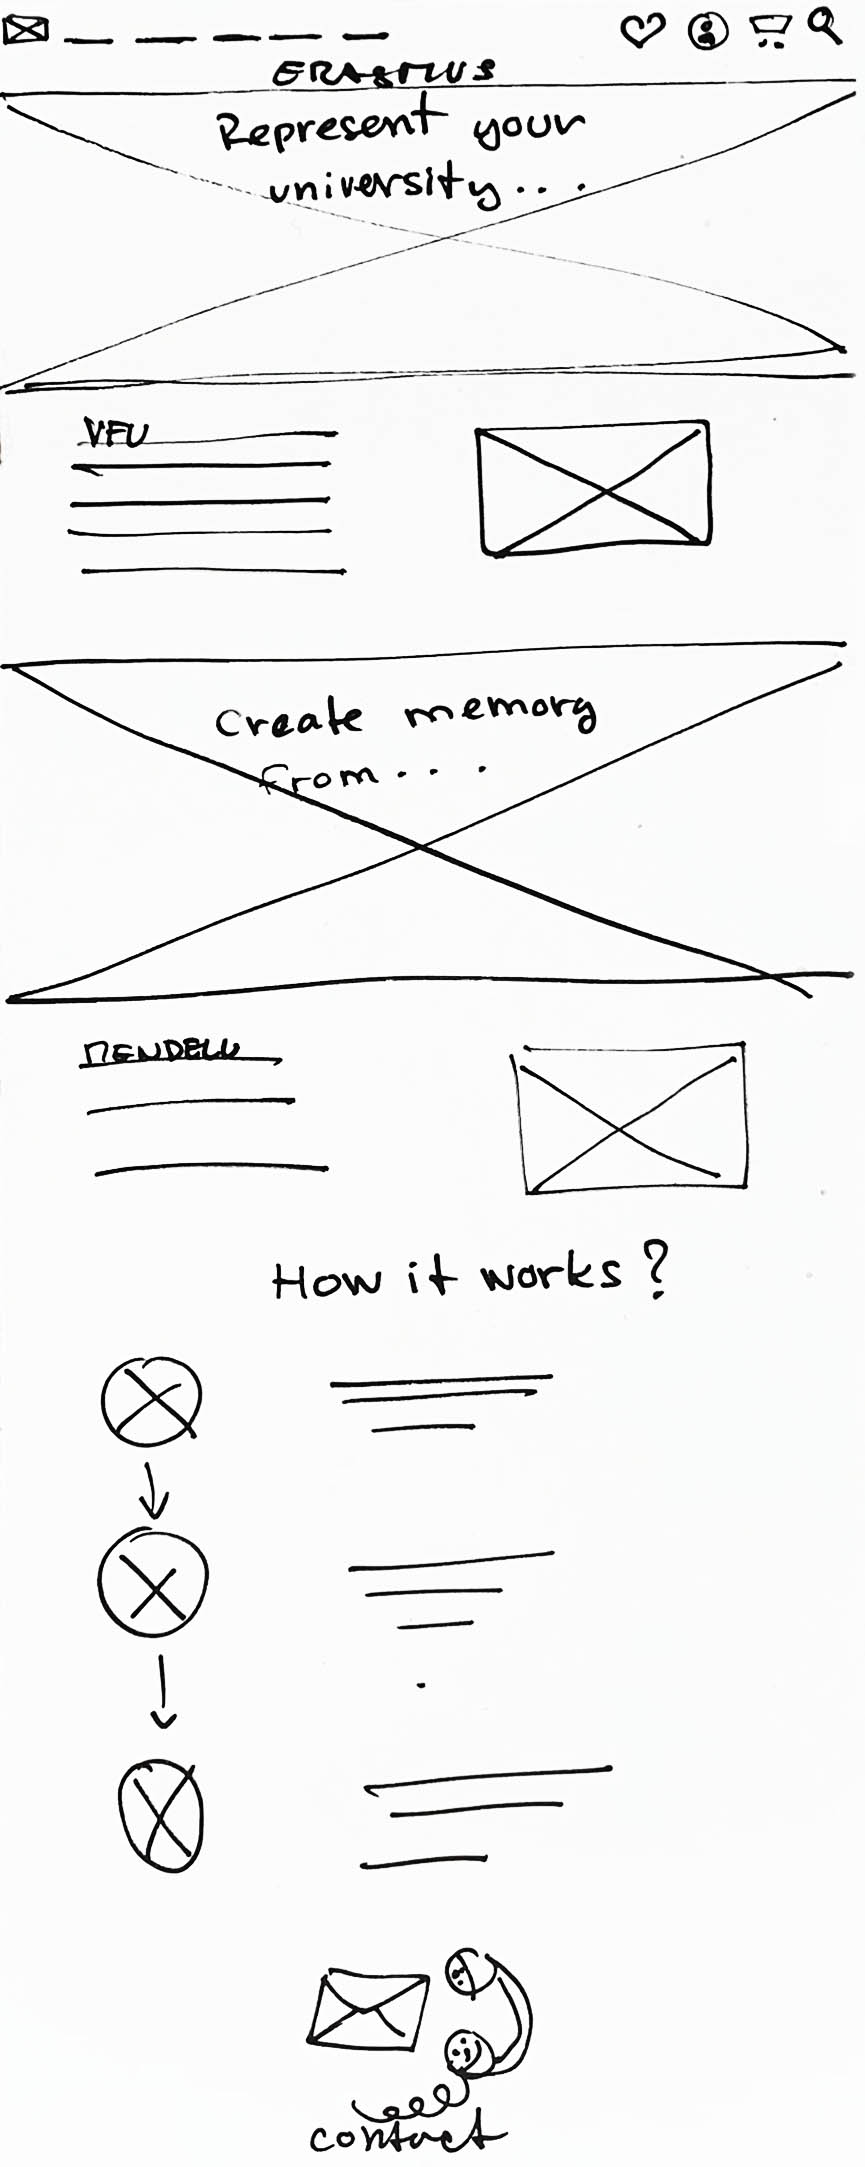 ERASMUS
Represent your
university...
VFU
Create memory
from....
MENDELU
How it works?
contact